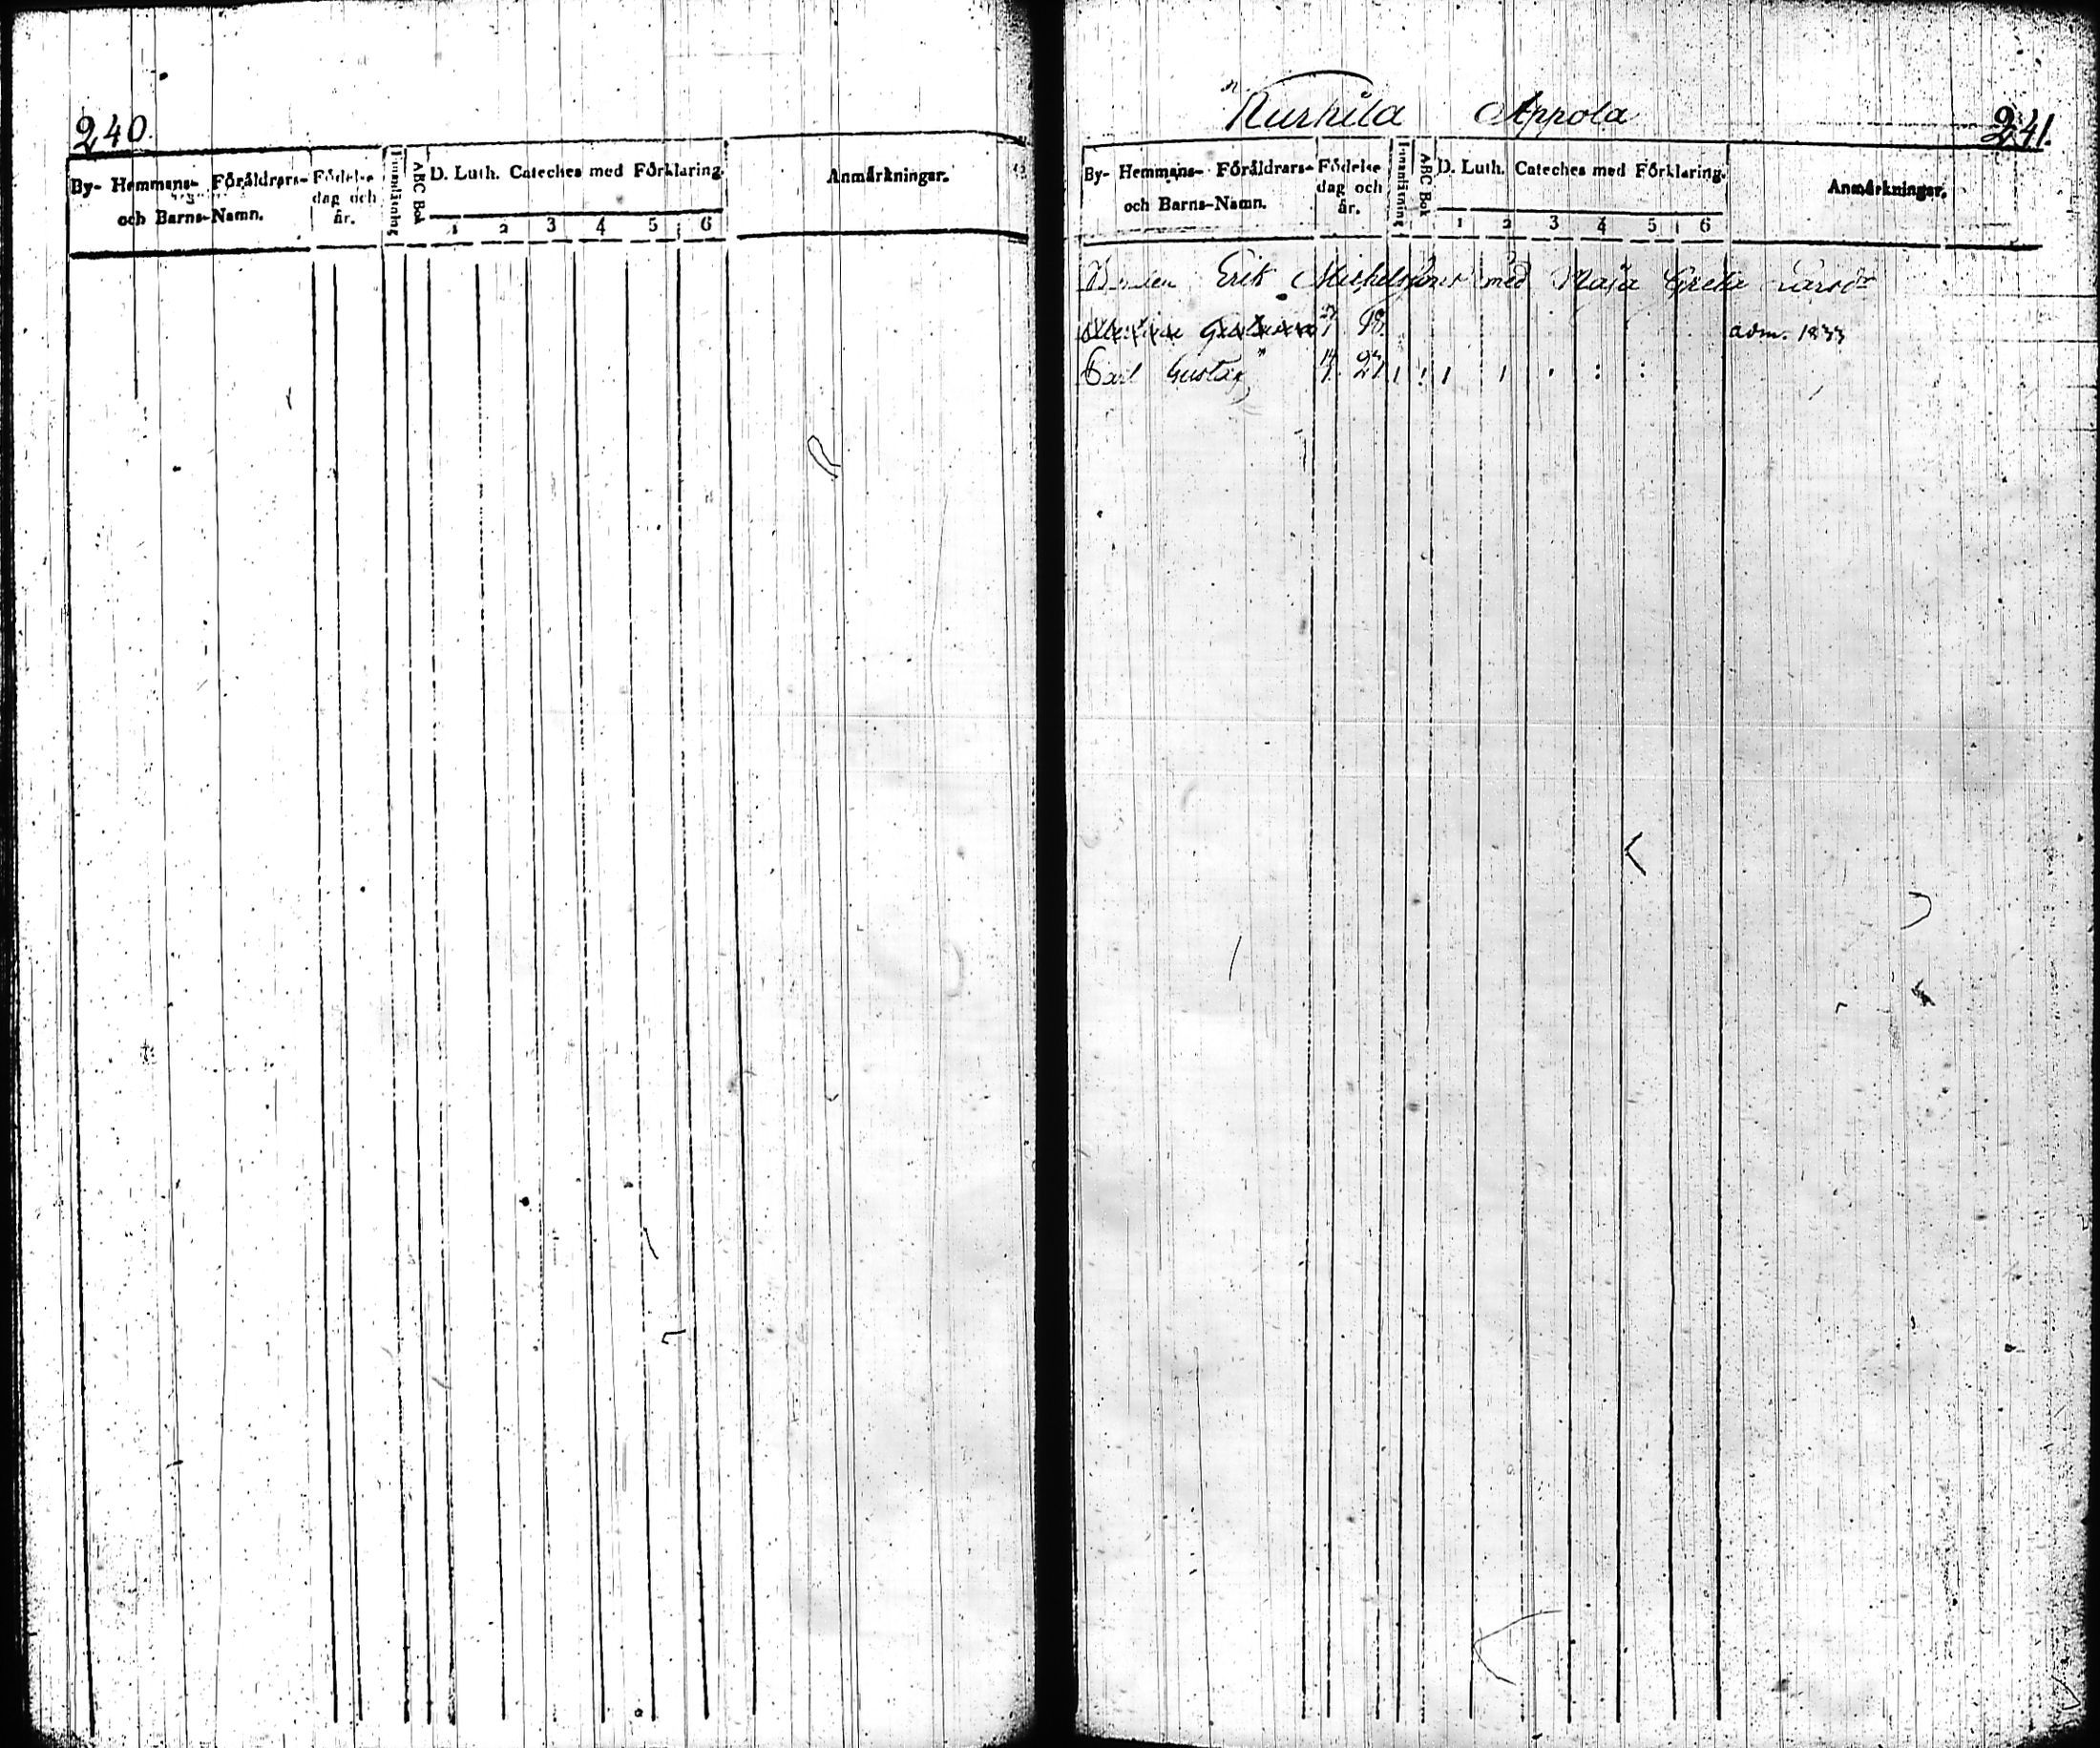 240.
By- Hemmans- Föräldrars- och Barns-Namn. Födelse dag och år. Innanläsning ABC Bok D. Luth. Cateches med Förklaring. 1 2 3 4 5 6 Anmärkningar.
Kurkila Appola 241.
By- Hemmans- Föräldrars- och Barns-Namn. Födelse dag och år. Innanläsning ABC Bok D. Luth. Cateches med Förklaring. 1 2 3 4 5 6 Anmärkningar.
Erik Michelsson med Maja Greta Larsdr
adm. 1833
Carl Gustaf